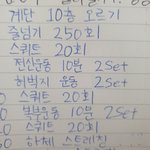 계단 10층 오르기
줄넘기 250회
스쿼트 20회
전신운동 10분 2set
허벅지 운동 2set
스쿼트 20회
복부운동 10분 2set
스쿼트 20회
하체 스트레칭